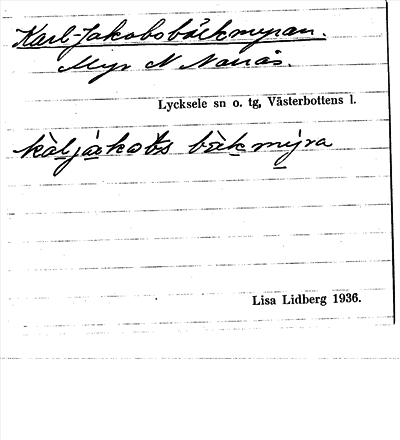 Karl-Jakobsbäckmyran.
Myr N Nanås.
Lycksele sn o. tg, Västerbottens l.
kàljákots bäkmýra
Lisa Lidberg 1936.